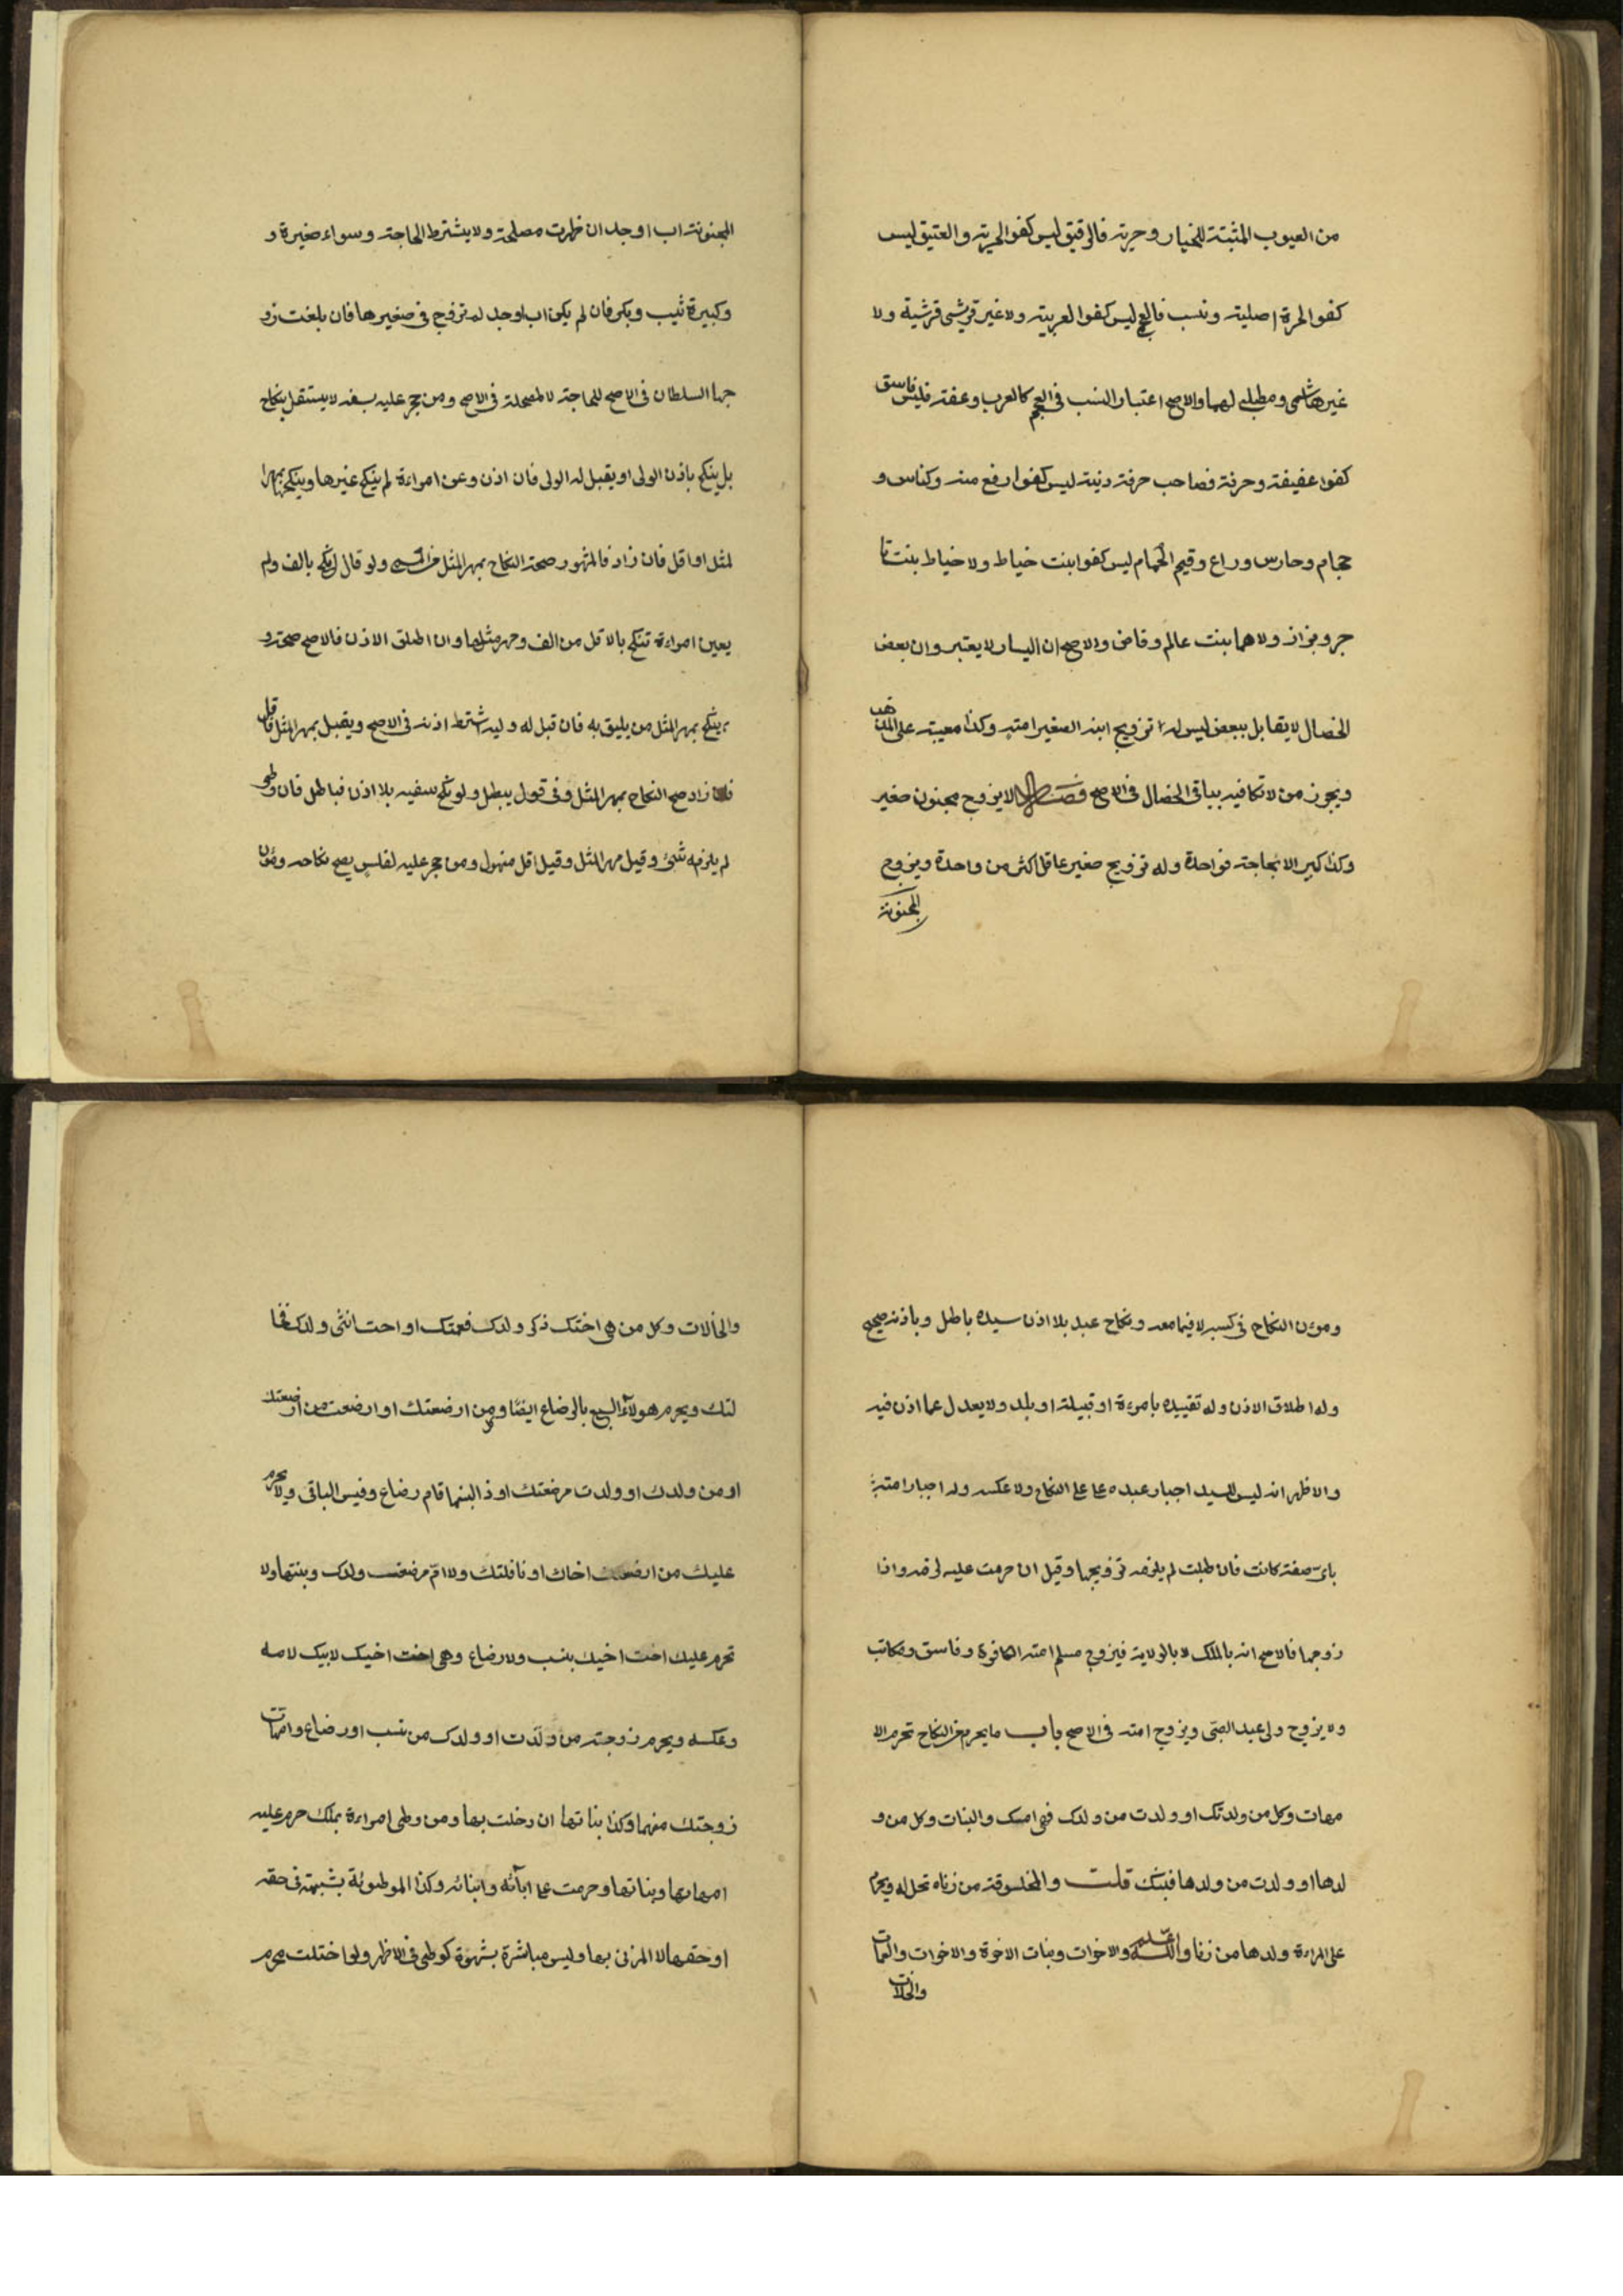 من العيوب المثبتة للخيار وحرية فالرقيق ليس كفوا لحرية والعتيق ليس
كفوا لحرة اصلية ونسب فالعجم ليس كفوا لعربية ولا غير قريشى قرشية ولا
غير هاشمى ومطلبى لهما والاصح اعتبار النسب فى العجم كالعرب وعفة فليس فاسق
كفوا عفيفة وحرفة فصاحب حرفة دنية ليس كفوا ارفع منه وكناس و
حجام وحارس وراع وقيم الحمام ليس كفوا بنت خياط ولا خياط بنت تا
جر وبزاز ولا هما بنت عالم وقاض والاصح ان اليسار لا يعتبر وان بعض
الخصال لا يقابل ببعض ليس له تزويج ابنه الصغير امته وكذا معيبة على المذهب
ويجوز من لا تكافيه بباقى الخصال فى الاصح فصل لا يزوج مجنون صغير
وكذا كبير الا لحاجة فواحدة وله تزويج صغير عاقل اكثر من واحدة ويزوج
المجنونة
المجنونة اب او جد ان ظهرت مصلحة ولا يشترط الحاجة وسواء صغيرة و
وكبيرة ثيب وبكر فان لم يكن اب او جد لم تزوج فى صغيرها فان بلغت زو
جها السلطان فى الاصح للحاجة لا لمصحلة فى الاصح ومن حجر عليه بسفه لا يستقل بنكاح
بل ينكح باذن الولى او يقبل له الولى فان اذن وعن امراءة لم ينكح غيرها وينكحها بمهرا
لمثل او اقل فان زاد فالمشهور صحة النكاح بمهر المثل من المسمى ولو قال انكح بالف ولم
يعين امراءة تنكح بالاقل من الف ومهر مثلها وان اطلق الاذن فالاصح صحته و
ينكح بمهر المثل من يليق به فان قبل له وليه اشترط اذنه فى الاصح ويقبل بمهر المثل فاقل
فان زاد صح النكاح بمهر المثل وفى قول يبطل ولو نكح سفيه بلا اذن فباطل فان وطى
لم يلزمه شئ وقيل مهر المثل وقيل اقل متمول ومن حجر عليه لفلس يصح نكاحه ومؤن
ومؤن النكاح فى كسبه لا فيما معه ونكاح عبد بلا اذن سيده باطل وباذنه صحيح
وله اطلاق الاذن وله تقييده بامرءة او قبيلة او بلد ولا يعدل عما اذن فيه
والاظهر انه ليس للسيد اجبار عبده على النكاح ولا عكسه وله اجبار امته
باى صفة كانت فان طلبت لم يلزمه تزويجها وقيل ان حرمت عليه لزمه واذا
زوجها فالاصح انه بالملك لا بالولاية فيزوج مسلم امته الكافرة وفاسق ومكاتب
ولا يزوج ولى عبد الصبى ويزوج امته فى الاصح باب ما يحرم من النكاح تحرم الا
مهات وكل من ولدتك او ولدت من ولدك فهى امك والبنات وكل من و
لدها او ولدت من ولدها فبنتك قلت والمخلوقة من زناه تحل له ويحرم
على المراءة ولدها من زنا والله اعلم والاخوات وبنات الاخوة والاخوات والعمات
والخالات
والخالات وكل من هى اختك ذكر ولدك فعمتك او احت انثى ولدك فخا
لتك ويحرم هولاء السبع بالرضاع ايضا ومن ارضعتك او ارضعت من ارضعتك
او من ولدك او ولدت مرضعتك او ذا لبنها فام رضاع وقس الباقى ولا يحرم
عليك من ارضعت اخاك او نافلتك ولا ام مرضعة ولدك وبنتها ولا
تحرم عليك اخت اخيك بنسب ولا رضاع وهى اخت اخيك لابيك لامه
وعكسه ويحرم زوجة من ولدت او ولدك من نسب او رضاع وامهات
زوجتك منهما وكذا بناتها ان دخلت بها ومن وطى امراءة بملك حرم عليه
امهاتها وبناتها وحرمت على ابآئه وابنائه وكذا الموطوئة بشبهة فى حقه
او حقها لا المزنى بها وليس مباشرة بشهوة كوطى فى الاظهر ولو اختلت محرم